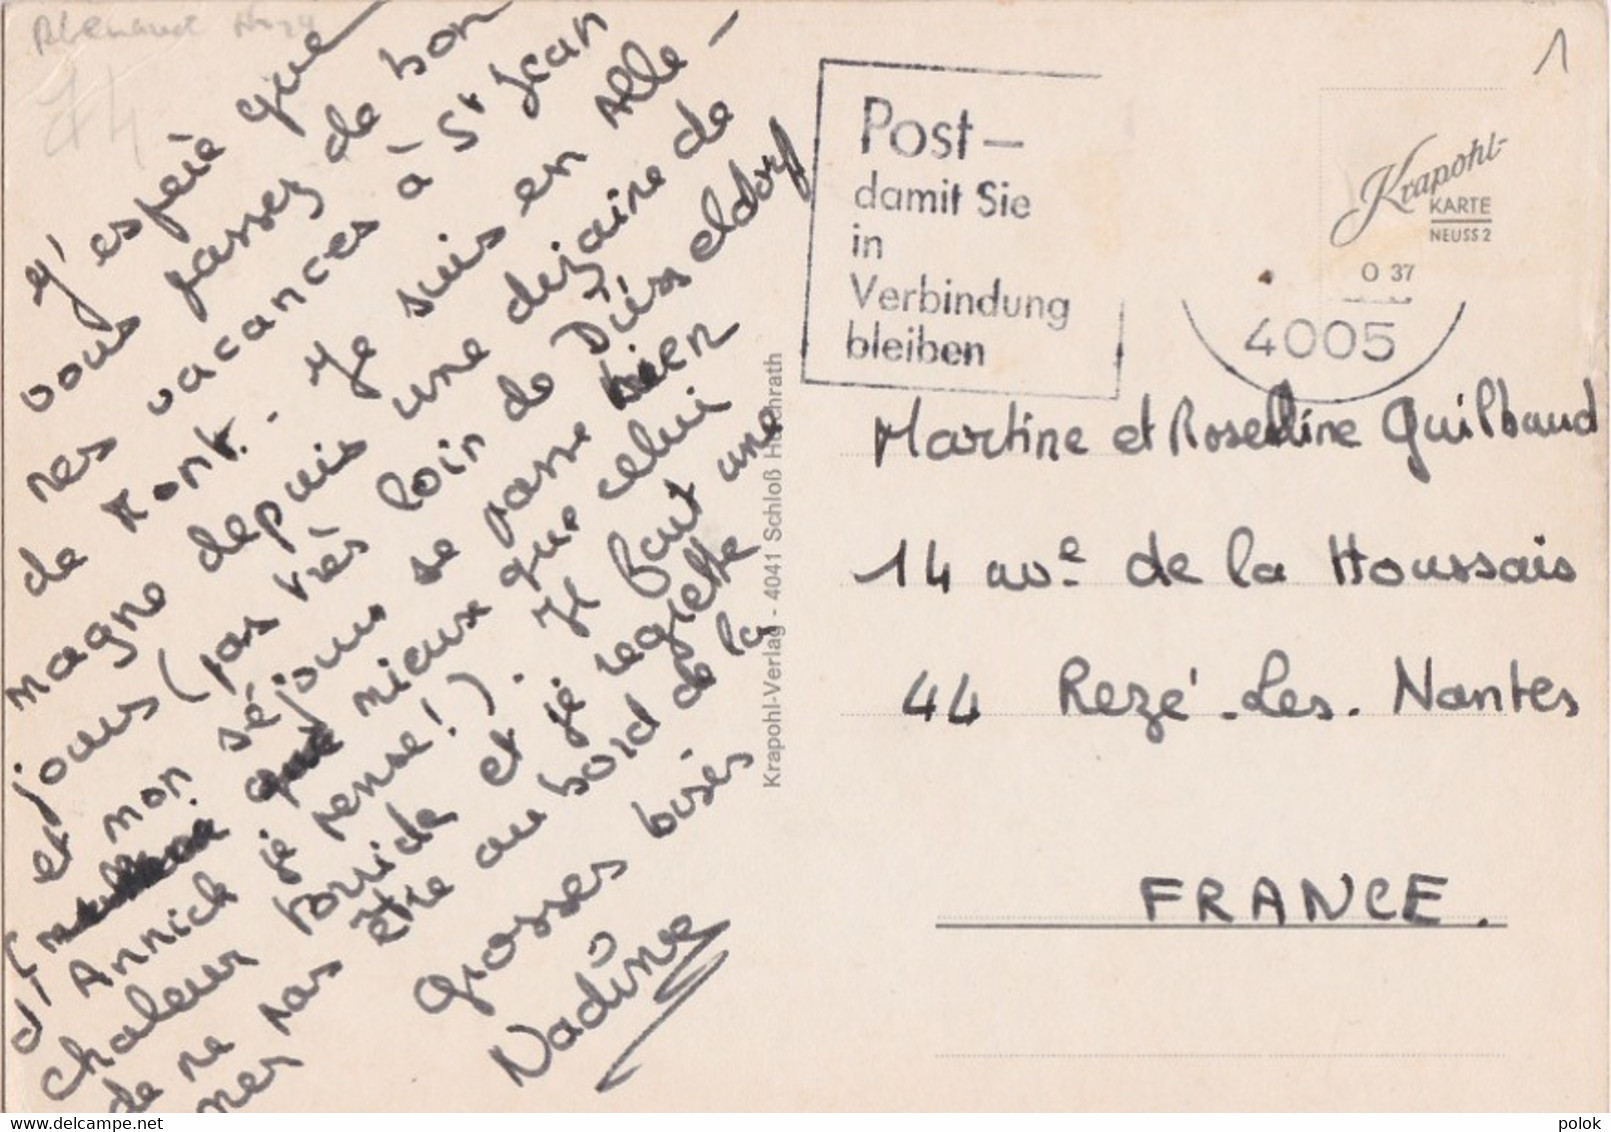 74
J'espère que
vous passez de bon
nes vacances à St Jean
de Mont. Je suis en Alle-
magne depuis une dizaine de
jours (pas très loin de Düsseldorf
et mon séjour se passe bien
mieux que celui
d'Annick je pense!). Il fait une
chaleur torride et je regrette
de ne pas être au bord de la
mer
Grosses bises
Nadine
Krapohl-Verlag - 4041 Schloß Hülchrath
Post-
damit Sie
in
Verbindung
bleiben
1
Krapohl-
KARTE
NEUSS 2
O 37
4005
Martine et Roseline Guilbaud
14 ave de la Houssais
44 Rezé-Les-Nantes
FRANCE.
www.delcampe.net
polok